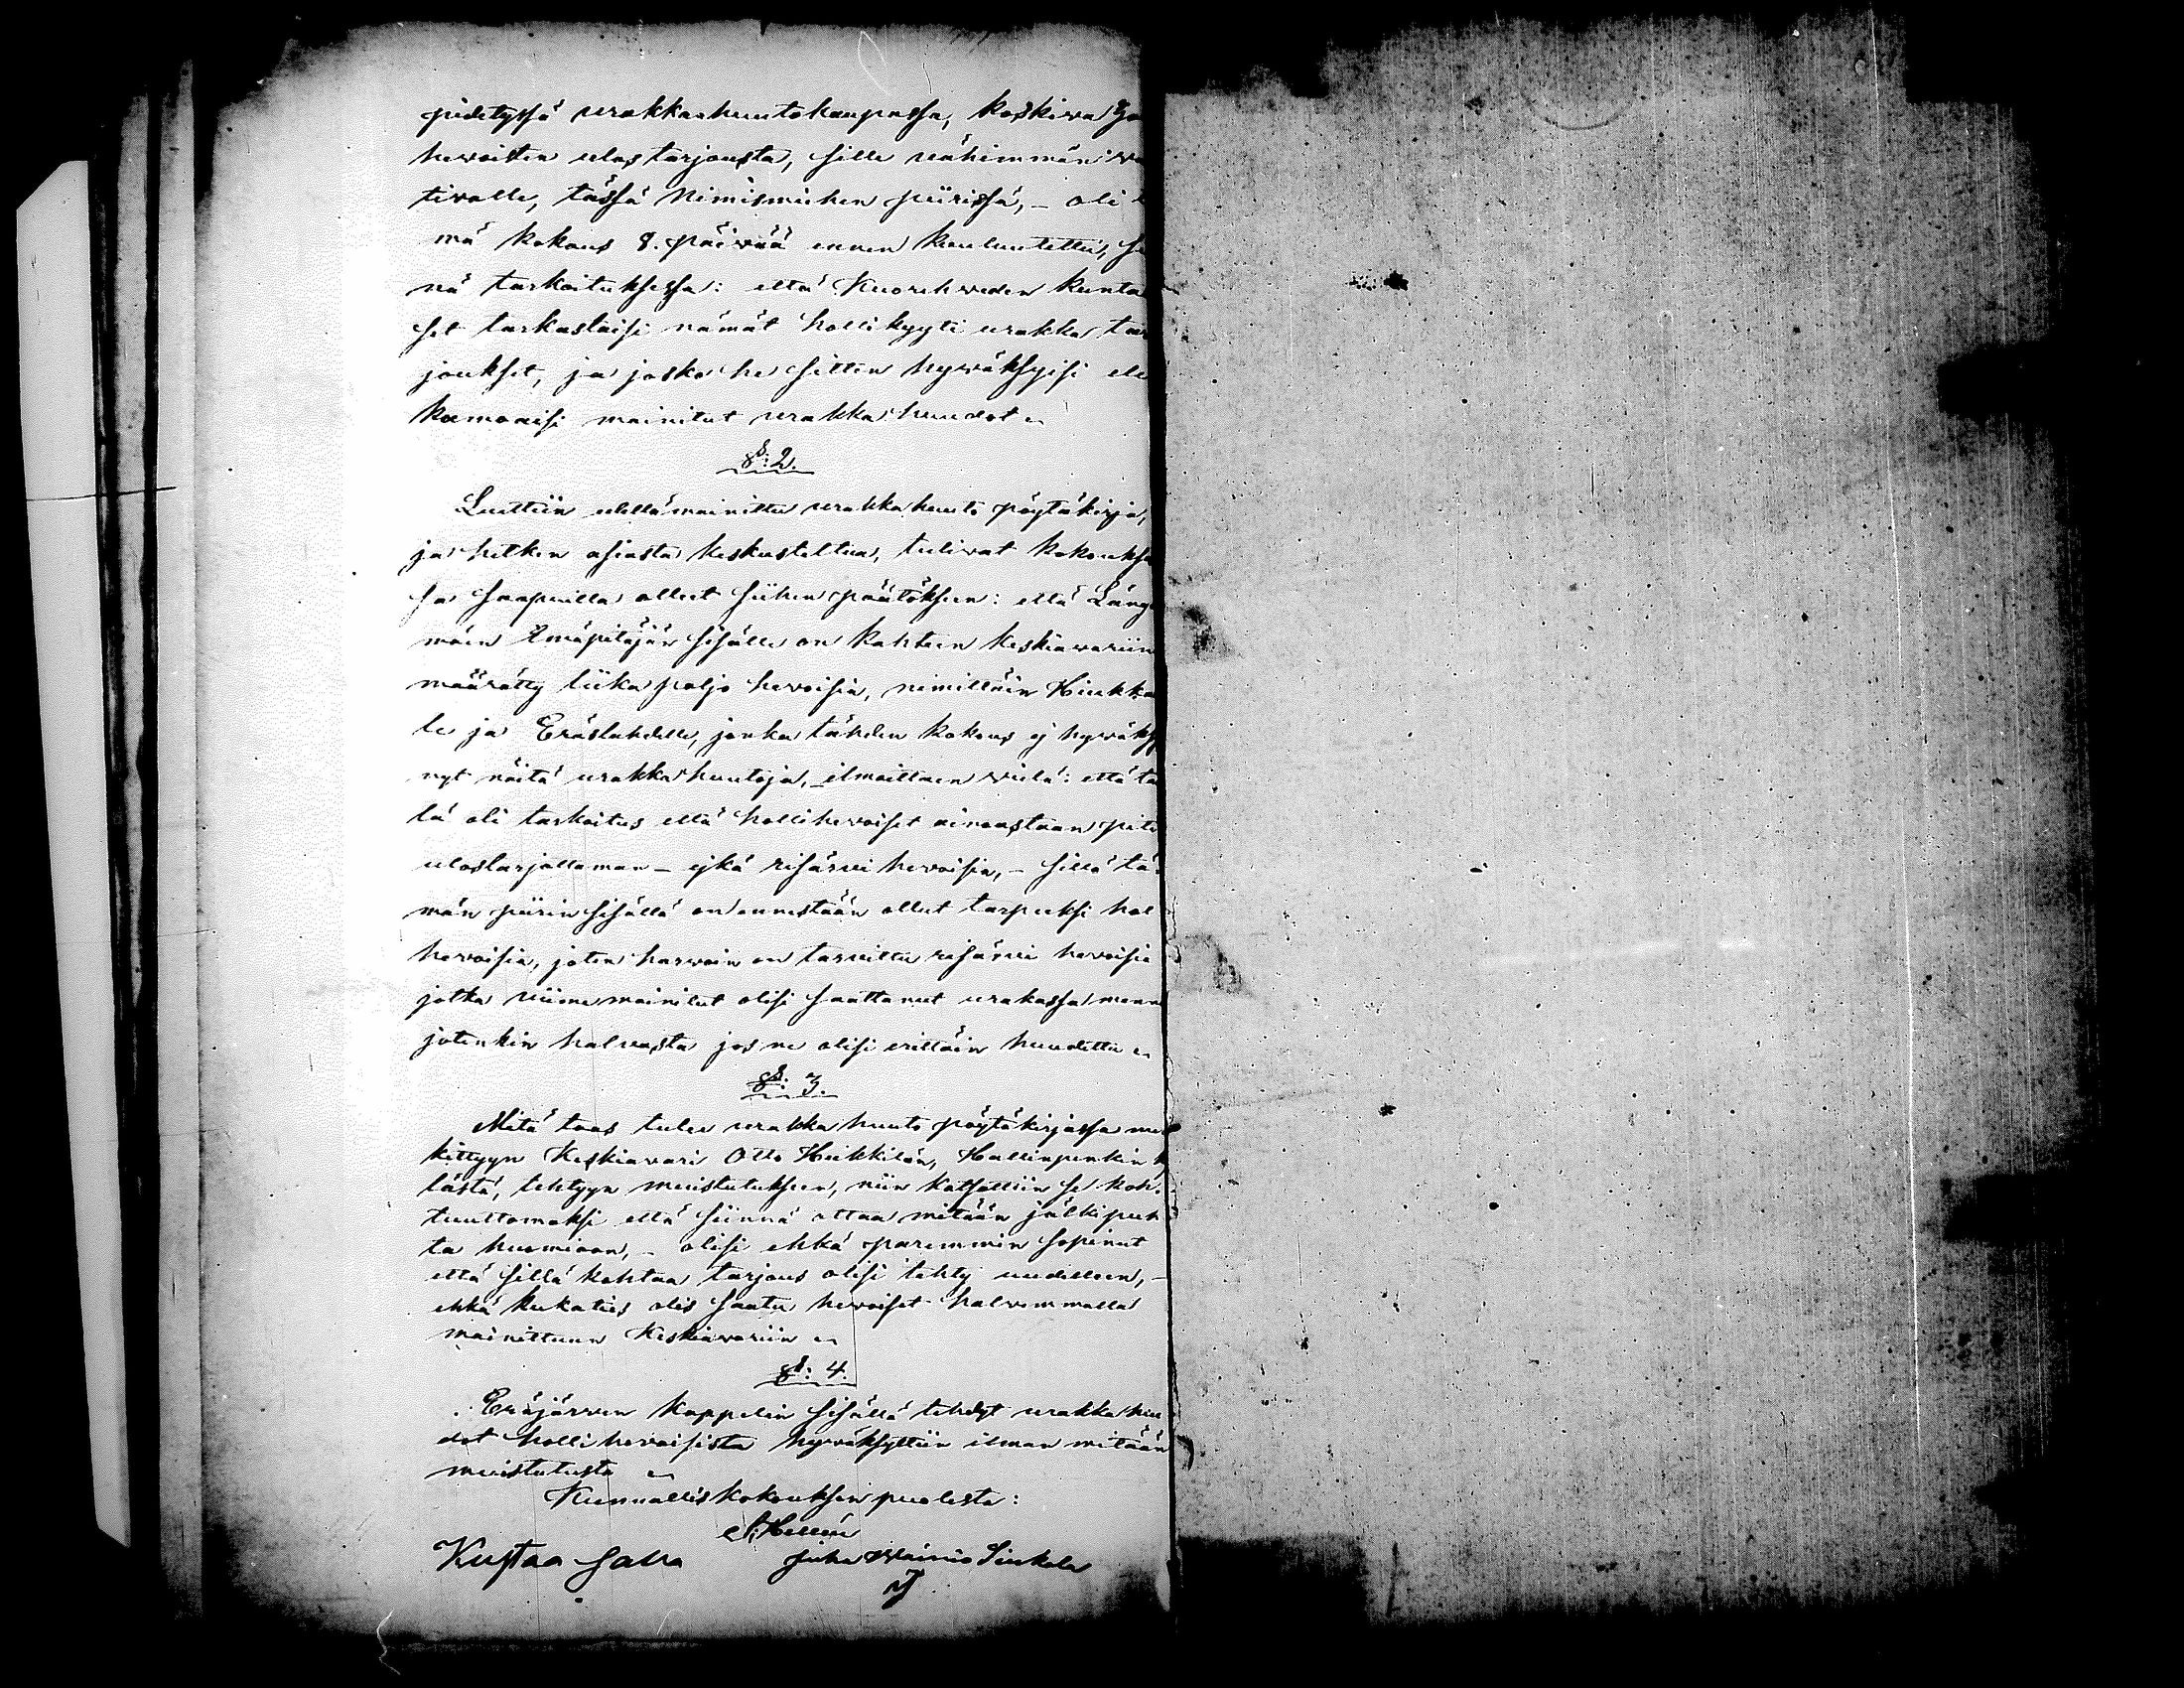 pidetyssä urakkahuutokaupassa, koskewa
hewoisten ulos tarjousta, sille vähimmän
tivalle, tässä Nimismiehen piirissä, - oli
mä kokous 8. päiwää ennen kuuluutettu,
nä tarkoituksessa: että Kuorehweden kunta
set tarkastaisi nämät hollikyyti urakka tar
joukset, ja josko he sitten hywäksyisi eli
kumoaisi mainitut urakka huudot.
§: 2.
Luettiin ulellämainittu urakkahuuto pöytäkirja,
ja hetken asiasta keskusteltua, tuliwat kokoukse
sa saapuilla olleet siihen päätökseen: että Läng
mäen Emäpitäjän sisälle on kahteen keskiewariin
määrätty liika paljo hevoisia, nimittäin Hiukka
le ja Eräslahdelle, jonka tähden kokous ej hywäksy
nyt näitä urakkahuutoja, - ilmoittaen wielä: että tä
lä oli tarkoitus että hollihevoiset ainoastaan piti
ulostarjottaman - ejkä risärvi hevoisia, - sillä tä
män piirin sisällä on ennestään ollut tarpeeksi hol
hevoisia, joten harwoin on tarvittu risärvi hevoisia
jotka viime mainitut olisi saattanut urakassa menn
jotenkin halvasta jos ne olisi erittäin huudettu.
§: 3.
Mitä taas tulee urakka huuto pöytäkirjassa mer
kittyyn Keskiawari Otto Heikkilän, Hallinpenkin
lästä, tehtyyn muistutukseen, niin katsottiin se koh-
tuuttomaksi että siinnä ottaa mitään jälkipuh
ta huomioon, - olisi ehkä paremmin sopinut
että sillä kohtaa tarjous olisi tehty uudelleen, -
ehkä kukaties olis saatu hevoiset halvemmalla
mainittuun Keskiewariin.
§: 4.
Eräjärwen kappelin sisällä tehdyt urakka huu
dot hollihevoisista hywäksyttiin ilman mitään
muistutusta
Kunnalliskokouksen puolesta:
Kustaa Salla Juha Wainio Siukola